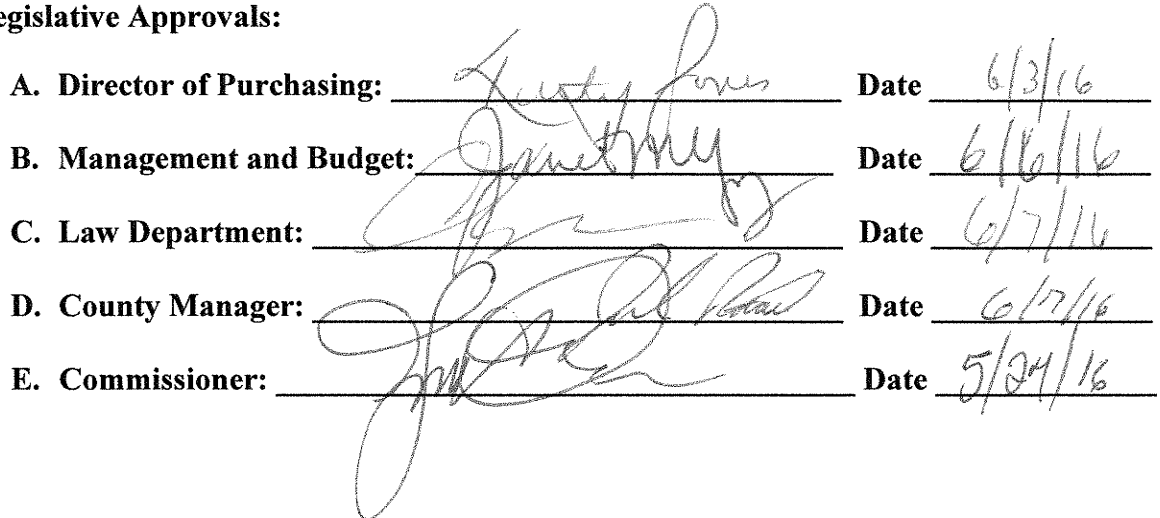 egislative Approvals:
A. Director of Purchasing: Jones Date 6/3/16
B. Management and Budget: Date 6/6/16
C. Law Department: Date 6/7/16
D. County Manager: Date 6/7/16
E. Commissioner: Date 5/24/16